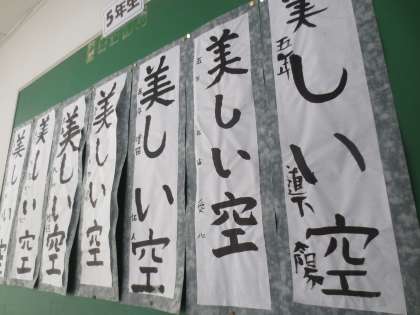 5年生
美しい空
五年
美しい空
美しい空
美しい空
美しい空
美しい空
美しい空